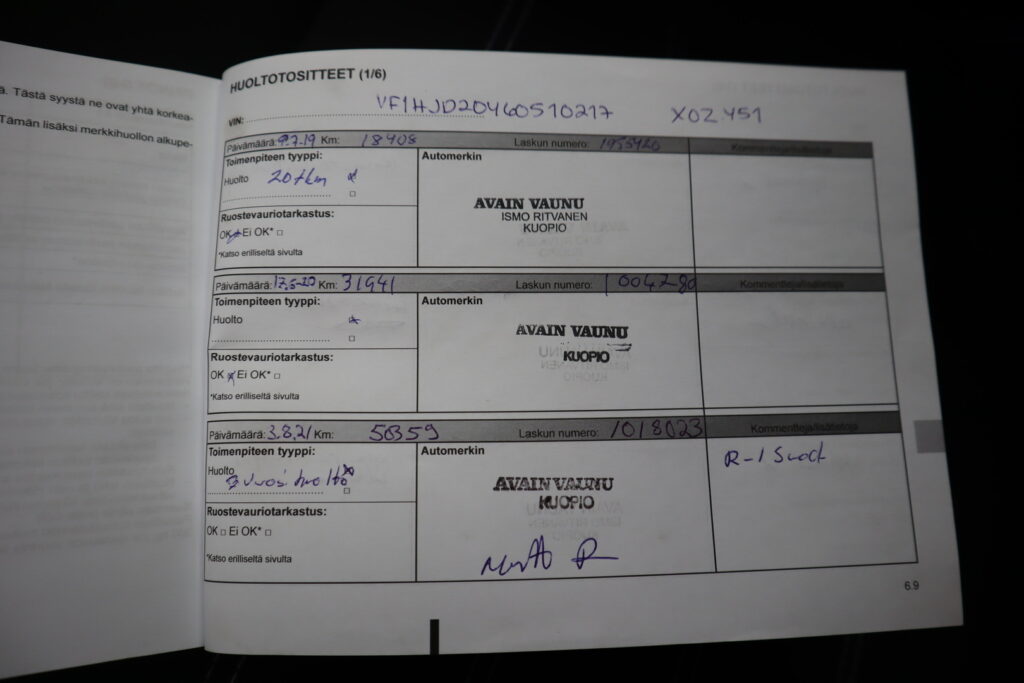 ä. Tästä syystä ne ovat yhtä korkea-
Tämän lisäksi merkkihuollon alkupe-
HUOLTOTOSITTEET (1/6)
VIN: VF1HJD20460510217 XOZ 451
Päivämäärä: 9.7.19 Km: 18408 Laskun numero: Kommentteja/lisätietoja
Toimenpiteen tyyppi: Automerkin
Huolto 20tkm
AVAIN VAUNU
ISMO RITVANEN
KUOPIO
Ruostevauriotarkastus:
OK Ei OK*
*Katso erilliseltä sivulta
Päivämäärä: 17.6-20 Km: 31941 Laskun numero: 1004280 Kommentteja/lisätietoja
Toimenpiteen tyyppi: Automerkin
Huolto
AVAIN VAUNU
KUOPIO
Ruostevauriotarkastus:
OK Ei OK*
*Katso erilliseltä sivulta
Päivämäärä: 3.8.21 Km: 50359 Laskun numero: 1018023 Kommentteja/lisätietoja
Toimenpiteen tyyppi: Automerkin
Huolto
vuosihuolto
AVAIN VAUNU
KUOPIO
Ruostevauriotarkastus:
OK Ei OK*
*Katso erilliseltä sivulta
6.9